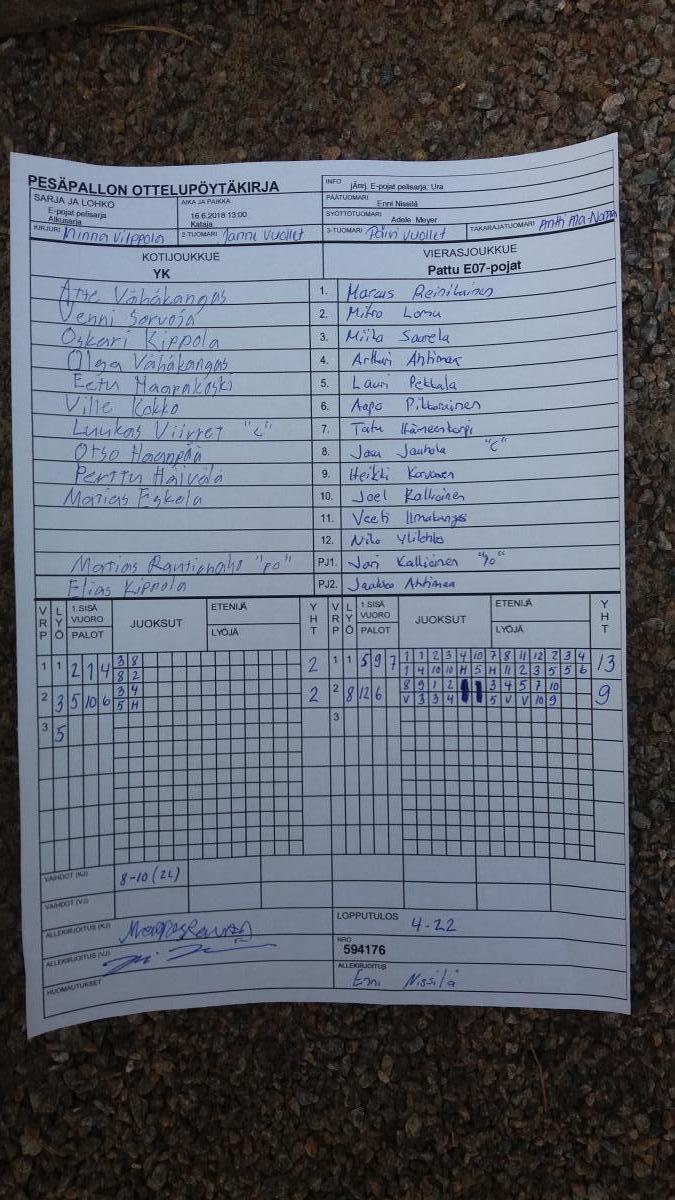 PESÄPALLON OTTELUPÖYTÄKIRJA
INFO jÄnrj. E-pojat pelisarja: Ura
SARJA JA LOHKO E-pojat pelisarja Alkusarja
AIKA JA PAIKKA 16.6.2018 13:00 Kataja
PÄÄTUOMARI Enni Nissilä
SYÖTTÖTUOMARI Adele Meyer
KIRJURI Minna Vilppola 2-TUOMARI Janne Vuollet 3-TUOMARI Päivi Vuollet TAKARAJATUOMARI
KOTIJOUKKUE VIERASJOUKKUE
YK Pattu E07-pojat
Atte Vähäkangas 1. Marcus Reinikainen
Venni Sorvoja 2. Mitro Loma
Oskari Kippola 3. Miika Saarela
Olga Vähäkangas 4. Artturi Ahtimaa
Eetu Haapakoski 5. Lauri Pekkala
Ville Kokko 6. Aapo Pikkarainen
Luukas Viirret "C" 7. Tatu Hämeenkorpi
Otso Haanpää 8. Jasu Jauhola "C"
Perttu Haivala 9. Heikki Korvonen
Matias Eskola 10. Joel Kallioinen
11. Veeti Ilmakangas
12. Niko Ylilehto
Matias Rautionaho "po" PJ1. Jari Kallioinen "Po"
Elias Kippola PJ2. Jaakko Ahtimaa
VRP LYÖ 1.SISÄ VUORO PALOT JUOKSUT ETENIJÄ LYÖJÄ YHT VRP LYÖ 1.SISÄ VUORO PALOT JUOKSUT ETENIJÄ LYÖJÄ YHT
1 1 2 1 4 3 8 2 1 1 5 9 7 1 1 2 3 4 10 7 8 11 12 2 3 4 13
8 2 1 4 10 10 H 5 H 11 2 3 5 5 6
2 3 5 10 6 3 4 2 2 8 12 6 8 9 1 2 3 4 5 7 10 9
5 H V 3 3 4 5 V V 10 9
3 5 3
VAIHDOT (KJ) 8-10 (2L)
VAIHDOT (VJ)
ALLEKIRJOITUS (KJ) LOPPUTULOS 4-22
ALLEKIRJOITUS (VJ) NRO 594176
HUOMAUTUKSET ALLEKIRJOITUS Enni Nissilä